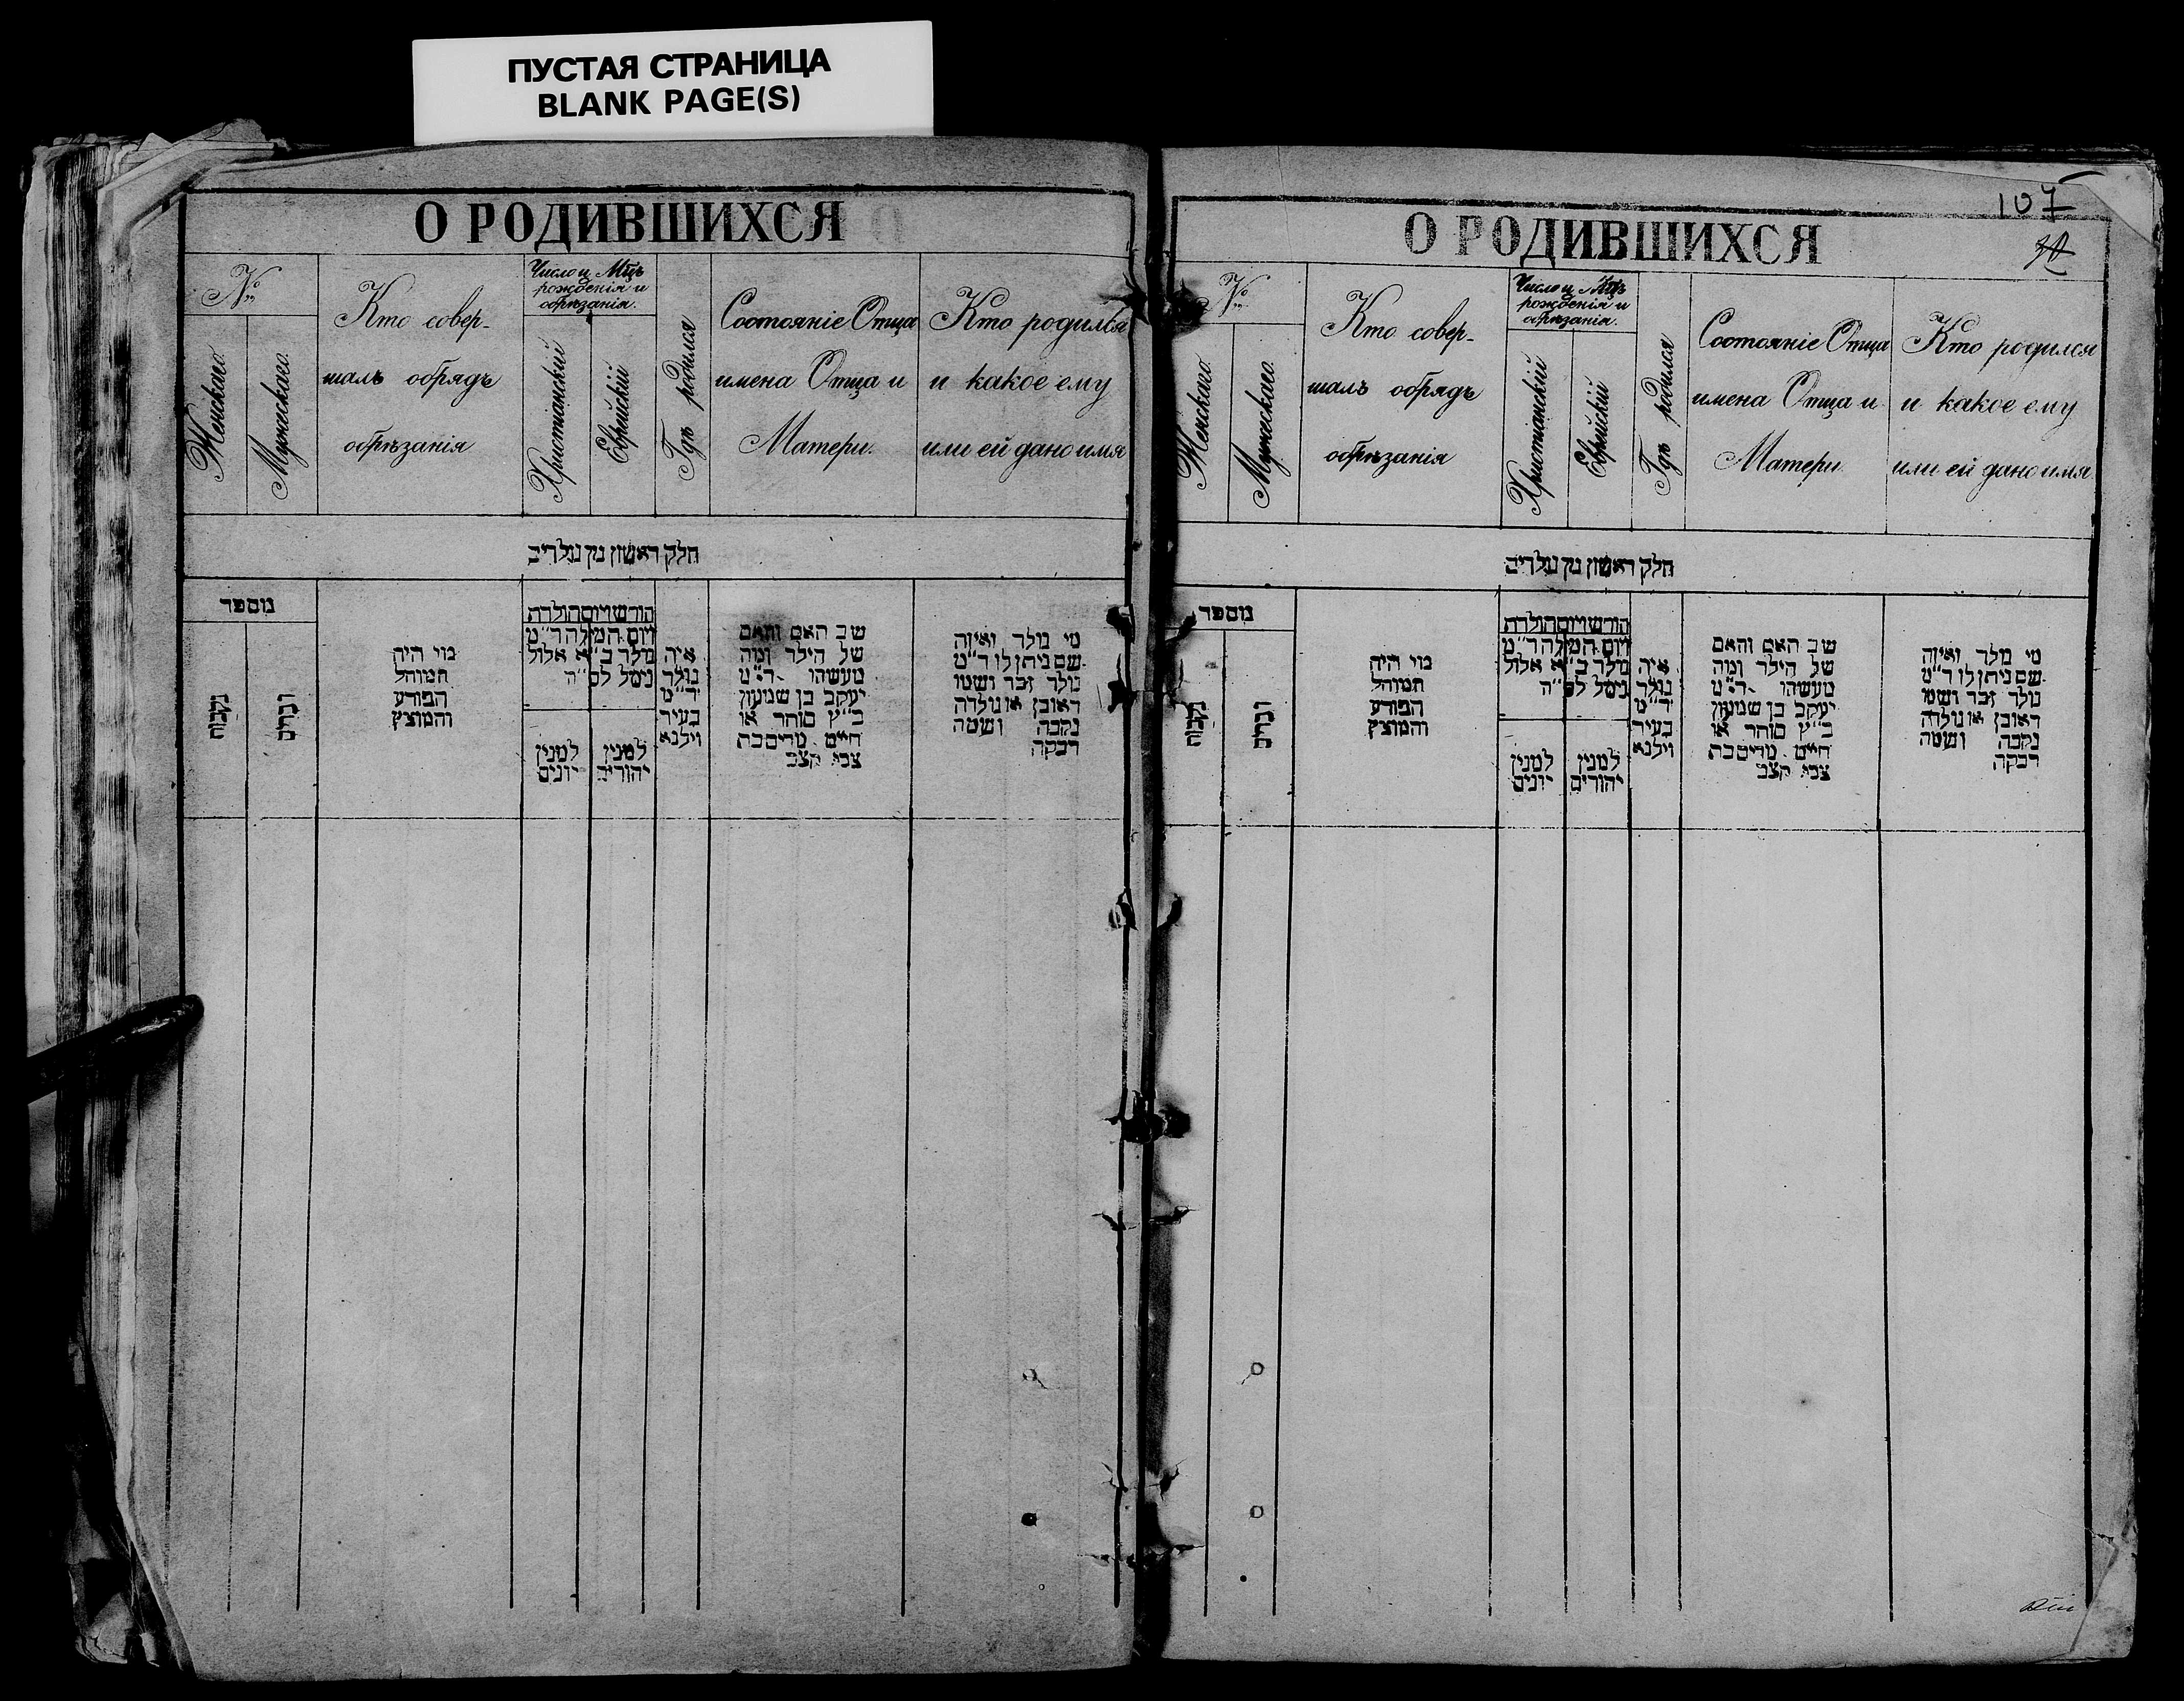 ПУСТАЯ СТРАНИЦА
BLANK PAGE(S)
О РОДИВШИХСЯ
№
Женскаго
Мужескаго
Кто совер-
шалъ обрядъ
обрѣзанія
Число и Мцъ
рожденія и
обрѣзанія.
Христіанскій
Еврейскій
Гдѣ родился
Состояніе Отца
имена Отца и
Матери.
Кто родился
и какое ему
или ей дано имя
חלק ראשון מן נולדים
מספר
נקבות
זכרים
מי היה
המוהל
הפורע
והמוצץ
חודש ויום הולדת
ויום המילה ד״מ
נולד ב״א אלול
נימל לס״ה
למנין
יונים
למנין
יהודים
איה
נולד
ד״מ
בעיר
וילנא
שם האב והאם
של הילד ומה
מעשהו ד״מ
יעקב בן שמעון
כ״ץ סוחר או
חייט מרים בת
צבי קצב
מי נולד ואיזה
שם ניתן לו ד״מ
נולד זכר ושמו
ראובן או נולדה
נקבה ושמה
רבקה
107
О РОДИВШИХСЯ
№
Женскаго
Мужескаго
Кто совер-
шалъ обрядъ
обрѣзанія
Число и Мцъ
рожденія и
обрѣзанія.
Христіанскій
Еврейскій
Гдѣ родился
Состояніе Отца
имена Отца и
Матери.
Кто родился
и какое ему
или ей дано имя
חלק ראשון מן נולדים
מספר
נקבות
זכרים
מי היה
המוהל
הפורע
והמוצץ
חודש ויום הולדת
ויום המילה ד״מ
נולד ב״א אלול
נימל לס״ה
למנין
יונים
למנין
יהודים
איה
נולד
ד״מ
בעיר
וילנא
שם האב והאם
של הילד ומה
מעשהו ד״מ
יעקב בן שמעון
כ״ץ סוחר או
חייט מרים בת
צבי קצב
מי נולד ואיזה
שם ניתן לו ד״מ
נולד זכר ושמו
ראובן או נולדה
נקבה ושמה
רבקה